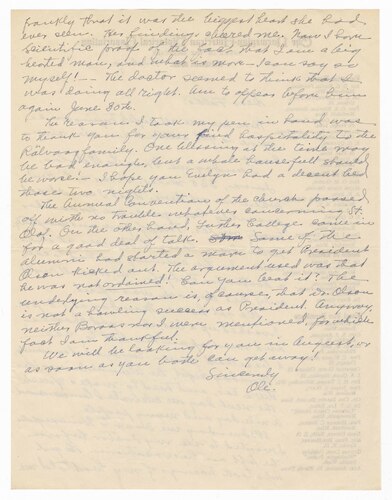 frankly that it was the biggest heart she had
ever seen. Her finding scared me. Now I have
scientific proof of the fact that I am a big
hearted man, and what is more – I can say so
myself! – The doctor seemed to think that I
was doing all right. Am to appear before him
again June 30th.
The reason I took my pen in hand was
to thank you for your kind hospitality to the
Rölvaag family. One blessing at the time may
be bad enough, but a whole house full should
be worse. – I hope you Evelyn had a decent bed
those two nights.
The Annual Convention of the Church passed
off with no trouble whatever concerning St.
Olaf. On the other hand, Luther College came in
for a good deal of talk. Some of the
alumni had started a move to get President
Olson kicked out. The argument used was that
he was not ordained! Can you beat it? The
underlying reason is, of course, that Dr. Olson
is not a howling success as President. Anyway,
neither nor I were mentioned, for which
fact I am thankful.
We will be looking for you in August, or
as soon as you both can get away!
Sincerely
Ole.